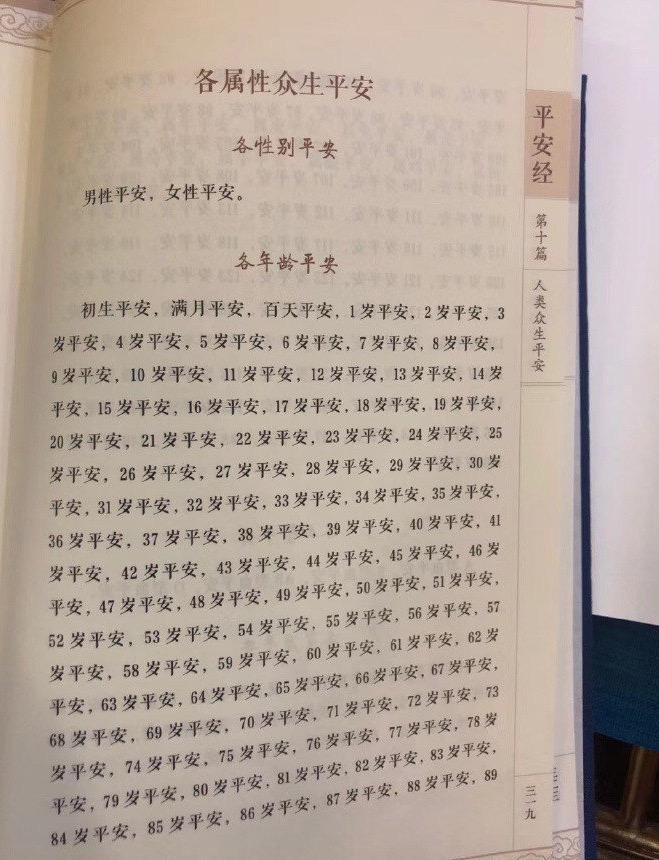 各属性众生平安
各性别平安
男性平安，女性平安。
各年龄平安
初生平安，满月平安，百天平安，1岁平安，2岁平安，3
岁平安，4岁平安，5岁平安，6岁平安，7岁平安，8岁平安，
9岁平安，10岁平安，11岁平安，12岁平安，13岁平安，14岁
平安，15岁平安，16岁平安，17岁平安，18岁平安，19岁平安，
20岁平安，21岁平安，22岁平安，23岁平安，24岁平安，25
岁平安，26岁平安，27岁平安，28岁平安，29岁平安，30岁
平安，31岁平安，32岁平安，33岁平安，34岁平安，35岁平安，
36岁平安，37岁平安，38岁平安，39岁平安，40岁平安，41
岁平安，42岁平安，43岁平安，44岁平安，45岁平安，46岁
平安，47岁平安，48岁平安，49岁平安，50岁平安，51岁平安，
52岁平安，53岁平安，54岁平安，55岁平安，56岁平安，57
岁平安，58岁平安，59岁平安，60岁平安，61岁平安，62岁
平安，63岁平安，64岁平安，65岁平安，66岁平安，67岁平安，
68岁平安，69岁平安，70岁平安，71岁平安，72岁平安，73
岁平安，74岁平安，75岁平安，76岁平安，77岁平安，78岁
平安，79岁平安，80岁平安，81岁平安，82岁平安，83岁平安，
84岁平安，85岁平安，86岁平安，87岁平安，88岁平安，89
平安经
第十篇
人类众生平安
三一九